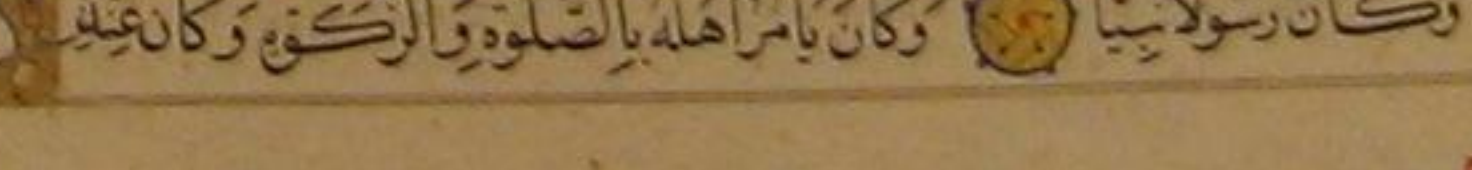 وكان رسولا نبيا وكان يأمر أهله بالصلوة والزكوة وكان عند